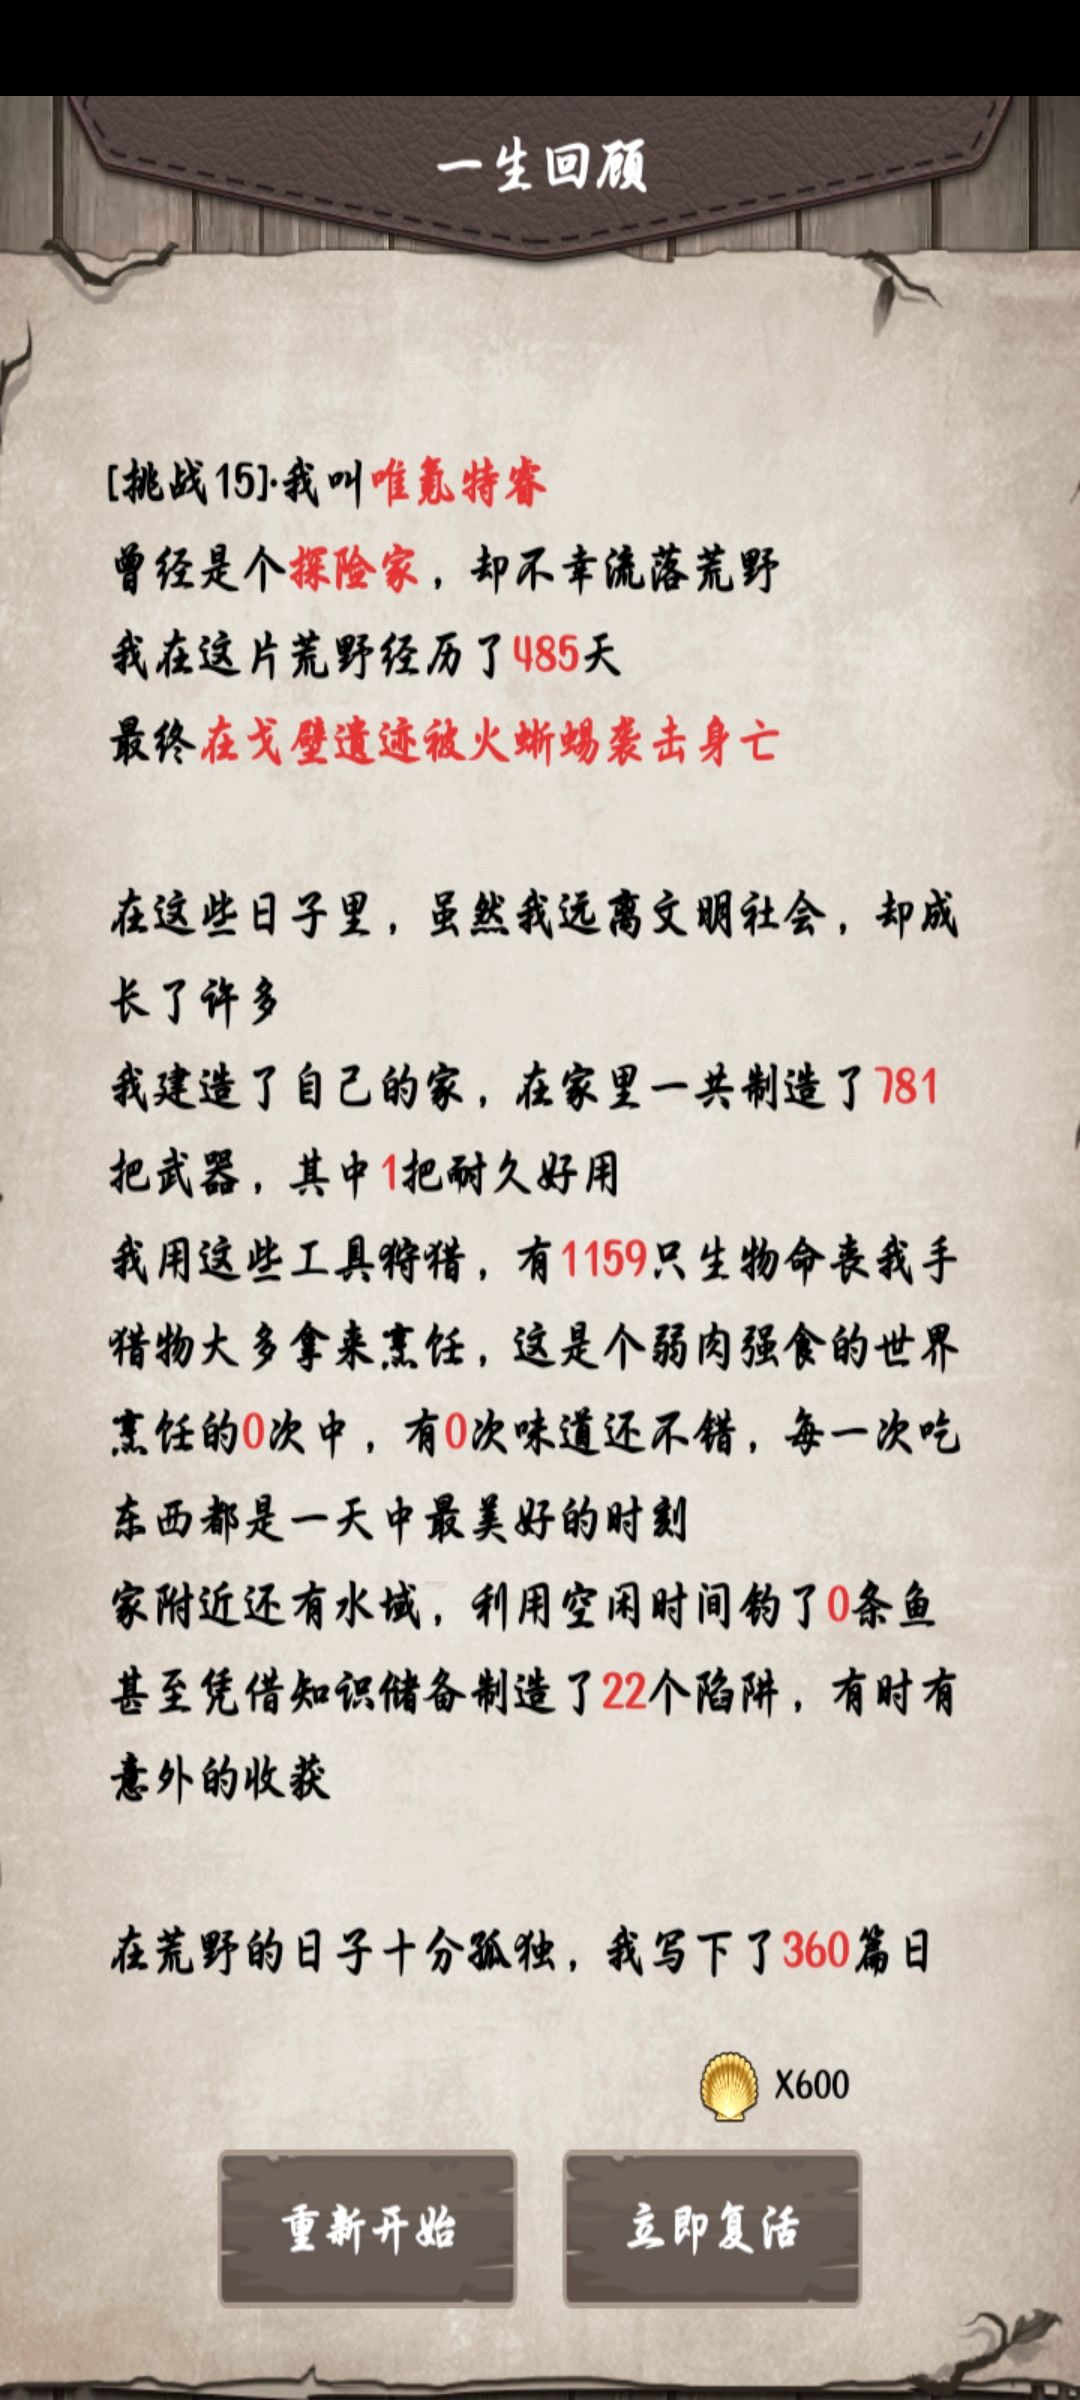 一生回顾
[挑战15]·我叫唯氪特睿
曾经是个探险家，却不幸流落荒野
我在这片荒野经历了485天
最终在戈壁遗迹被火蜥蜴袭击身亡
在这些日子里，虽然我远离文明社会，却成
长了许多
我建造了自己的家，在家里一共制造了781
把武器，其中1把耐久好用
我用这些工具狩猎，有1159只生物命丧我手
猎物大多拿来烹饪，这是个弱肉强食的世界
烹饪的0次中，有0次味道还不错，每一次吃
东西都是一天中最美好的时刻
家附近还有水域，利用空闲时间钓了0条鱼
甚至凭借知识储备制造了22个陷阱，有时有
意外的收获
在荒野的日子十分孤独，我写下了360篇日
X600
重新开始
立即复活